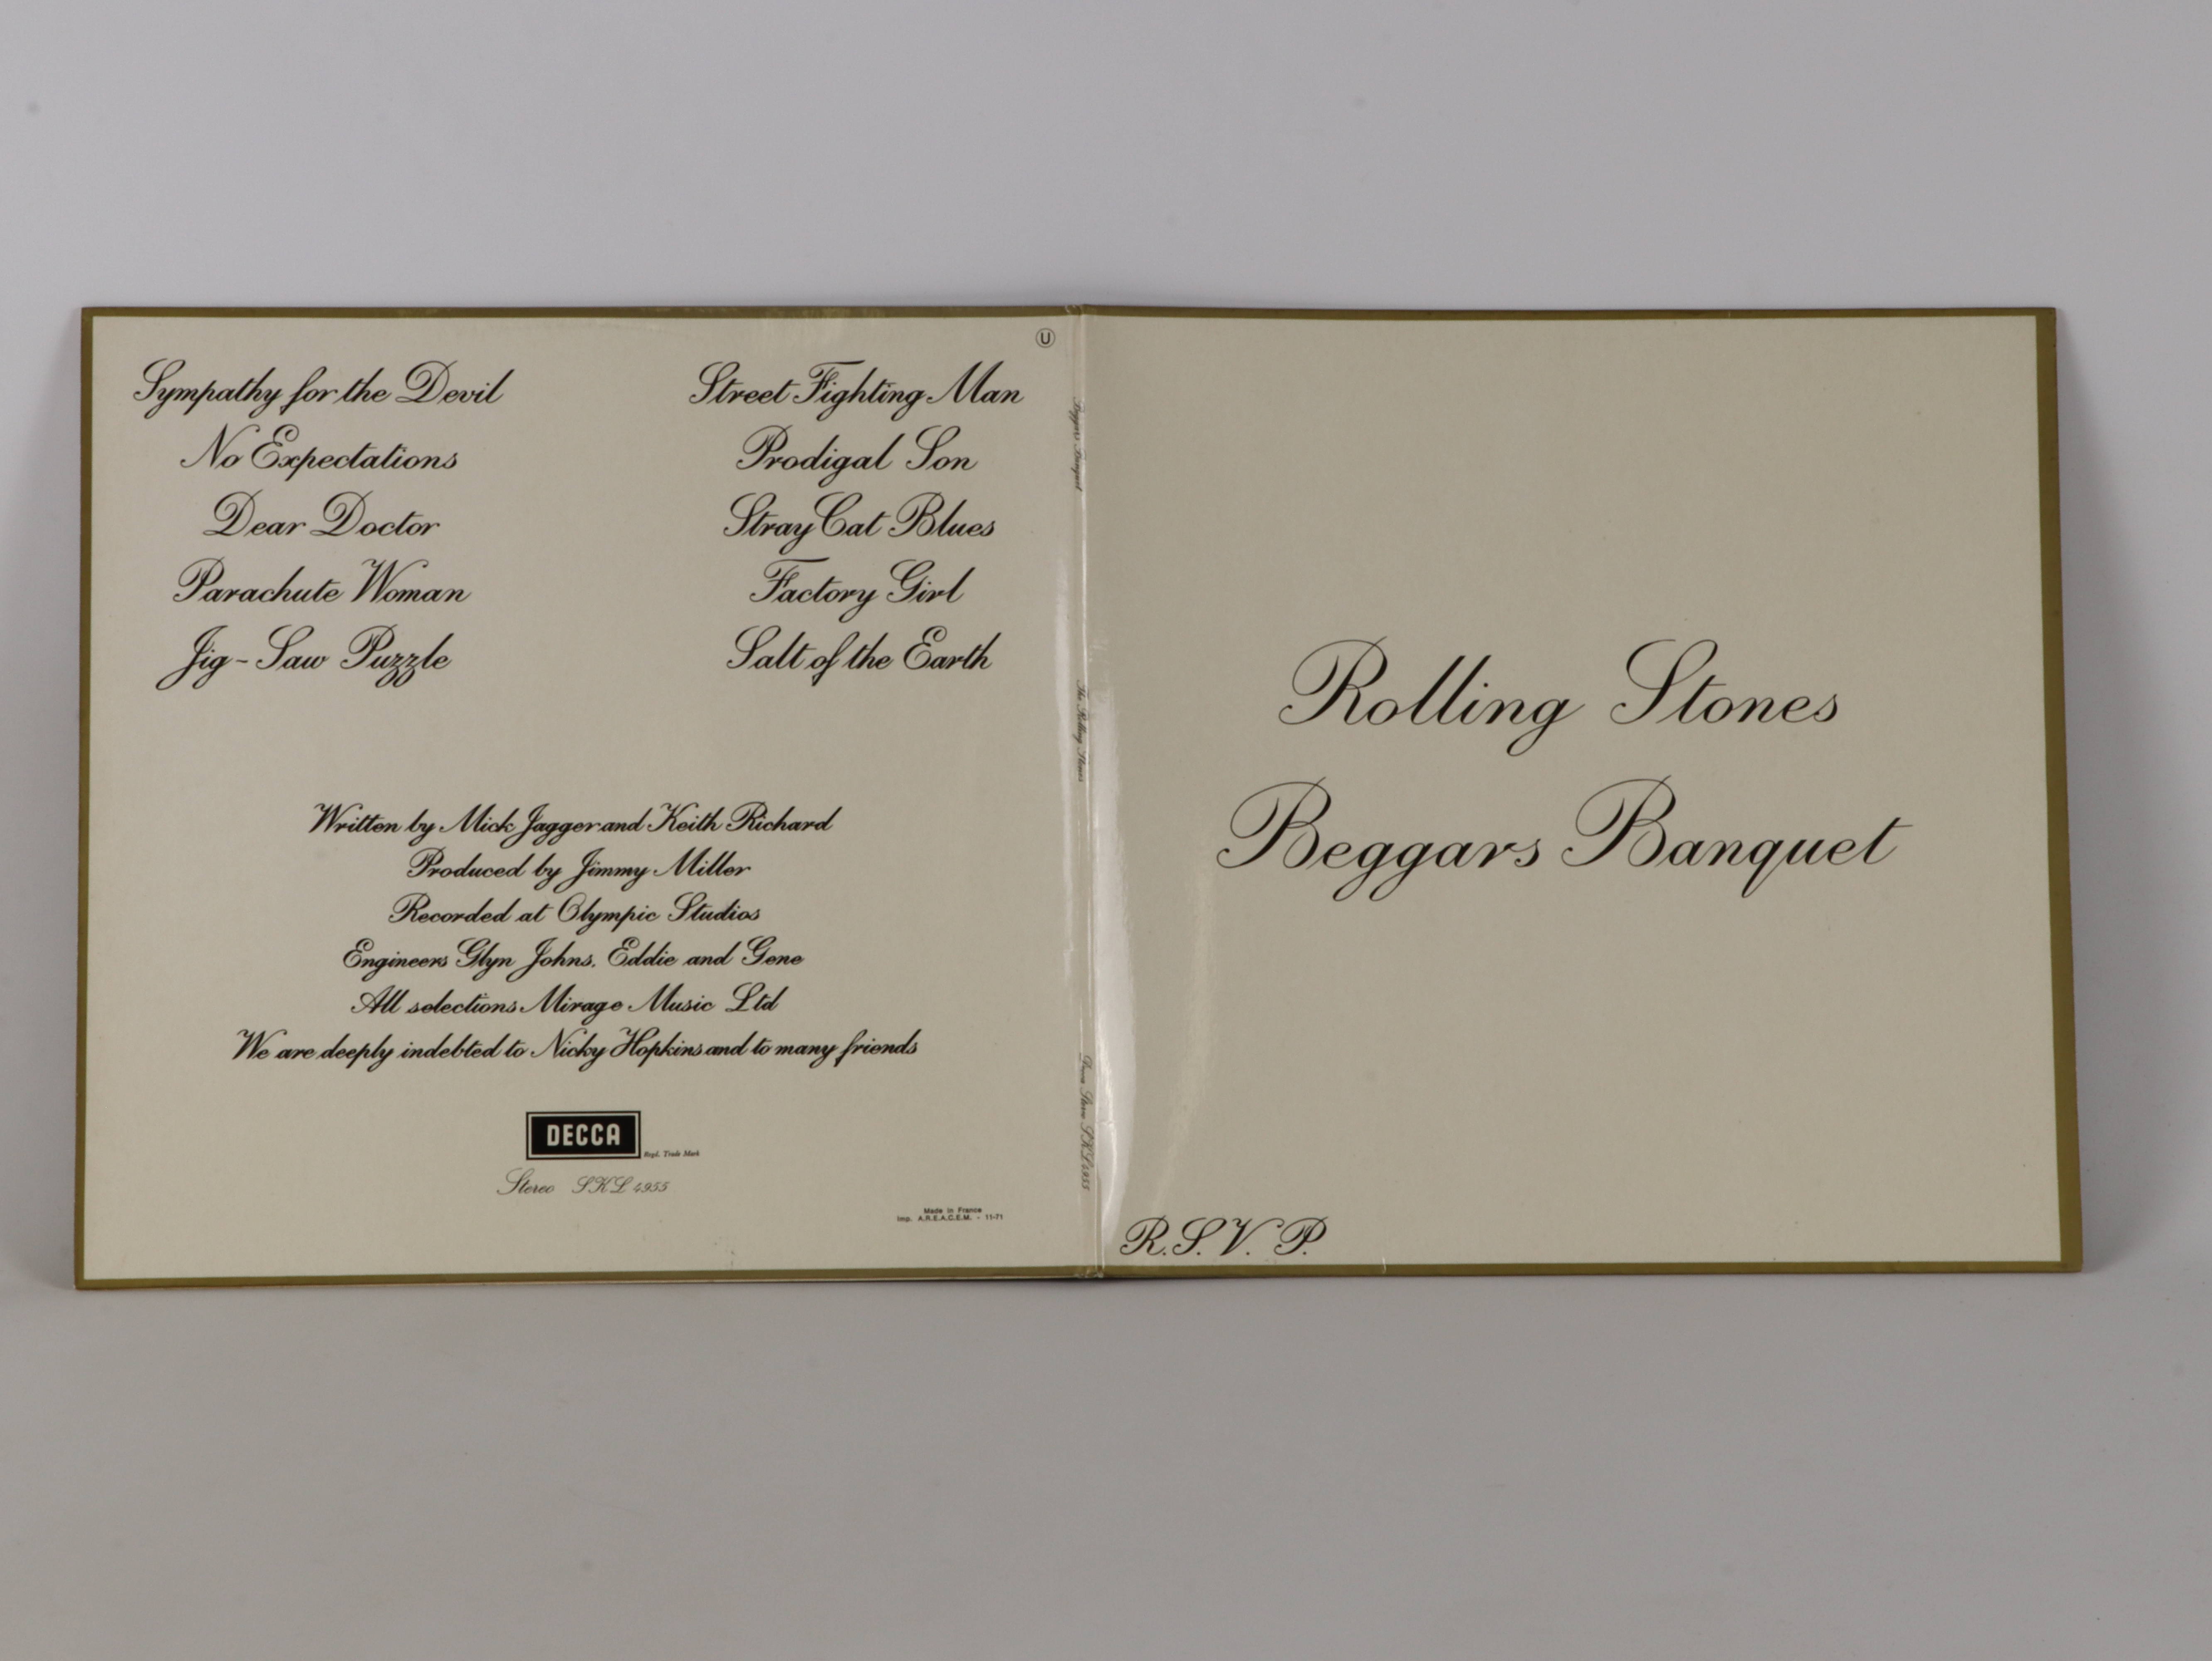 Sympathy for the Devil
No Expectations
Dear Doctor
Parachute Woman
Jig-Saw Puzzle
Street Fighting Man
Prodigal Son
Stray Cat Blues
Factory Girl
Salt of the Earth
U
Written by Mick Jagger and Keith Richard
Produced by Jimmy Miller
Recorded at Olympic Studios
Engineers Glyn Johns. Eddie and Gene
All selections Mirage Music Ltd
We are deeply indebted to Nicky Hopkins and to many friends
DECCA
Regd. Trade Mark
Stereo SKL 4955
Made in France
Imp. A.R.E.A.C.E.M. - 11-71
Beggars Banquet
The Rolling Stones
Decca Stereo SKL 4955
Rolling Stones
Beggars Banquet
R.S.V.P.